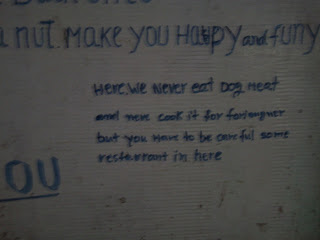 a nut. Make you Happy and funy
Here. We Never eat Dog Meat
and never cook it for foriengner
but you Have to be careful some
restaurant in here
OU